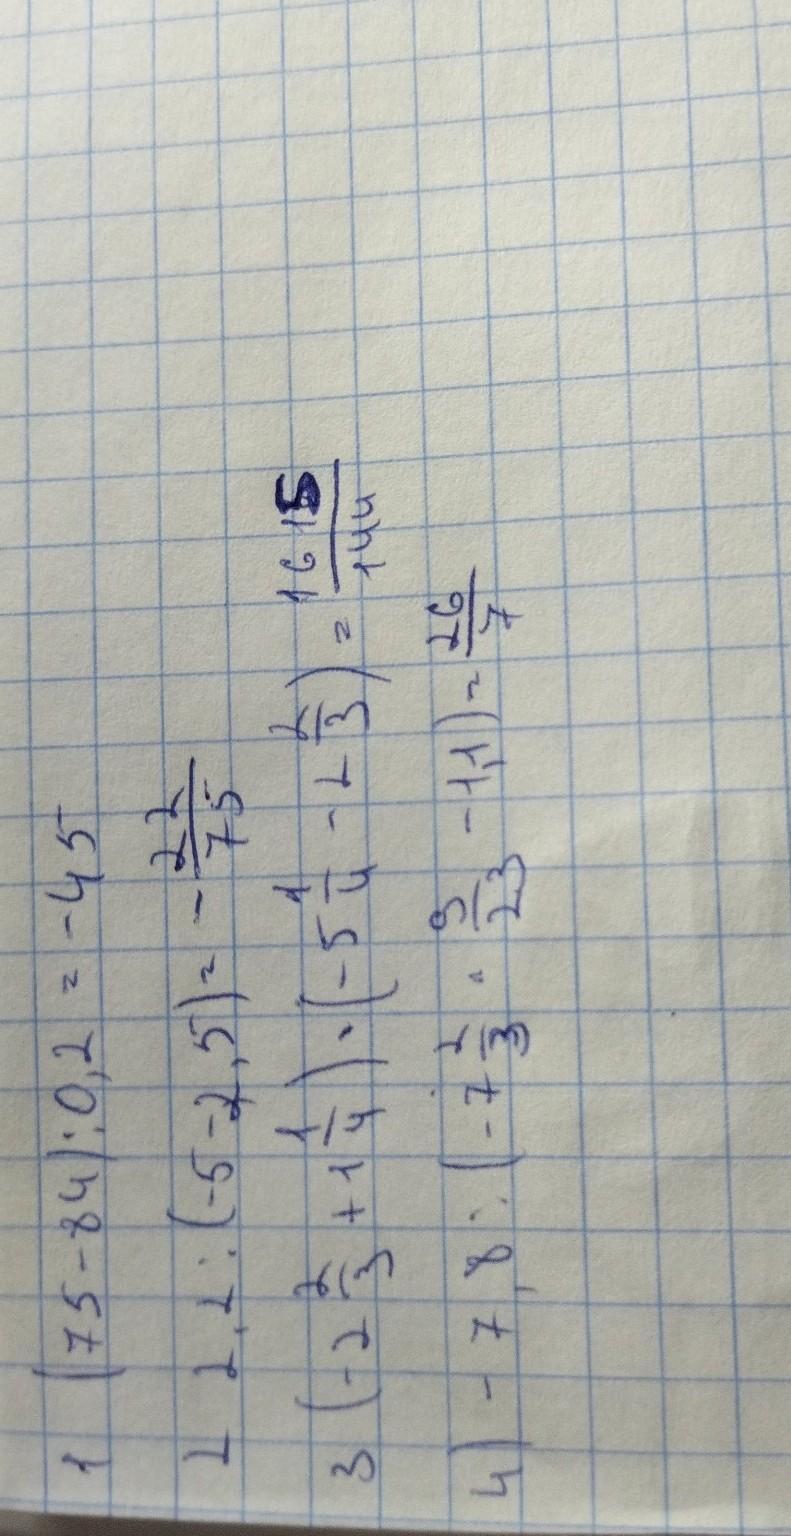 1 (75-84):0,2 = -45
2 2,2:(-5-2,5)= -22/75
3 (-2 2/3 +1 1/4)·(-5 1/4 -2 2/3) = 1615/144
4) -7,8:(-7 2/3 · 9/23 -1,1)= 26/7